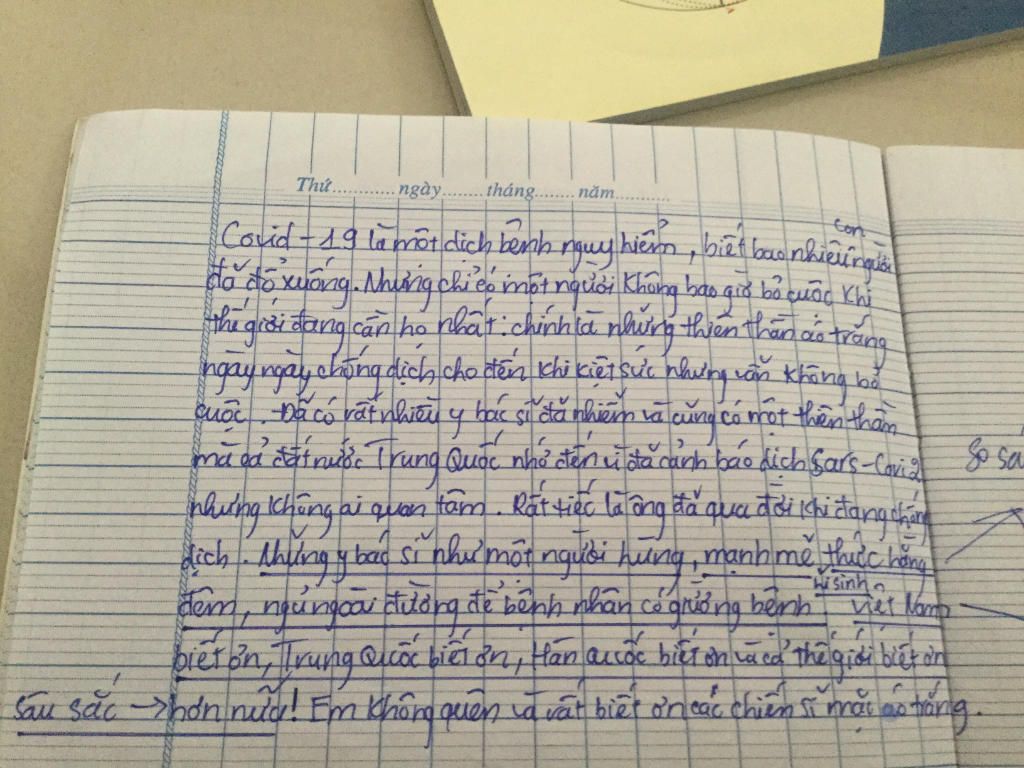 Thứ............ ngày........ tháng........ năm............
con
Covid-19 là một dịch bệnh nguy hiểm, biết bao nhiêu người
đã đổ xuống. Nhưng chỉ có một người không bao giờ bỏ cuộc khi
thế giới đang cần họ nhất: chính là những thiên thần áo trắng
ngày ngày, chống dịch cho đến khi kiệt sức nhưng vẫn không bỏ
cuộc. Đã có rất nhiều y bác sĩ đã nhiễm và cũng có một thiên thần
mà cả đất nước Trung Quốc nhớ đến vì đã cảnh báo dịch Sars-Covi2
nhưng không ai quan tâm. Rất tiếc là ông đã qua đời khi đang chống
dịch. Những y bác sĩ như một người hùng, mạnh mẽ thức hằng
đêm, ngủ ngoài đường để bệnh nhân có giường bệnh Việt Nam
hi sinh
biết ơn, Trung Quốc biết ơn, Hàn Quốc biết ơn và cả thế giới biết ơn
sâu sắc → hơn nữa! Em không quên và rất biết ơn các chiến sĩ mặc áo trắng.
So sá